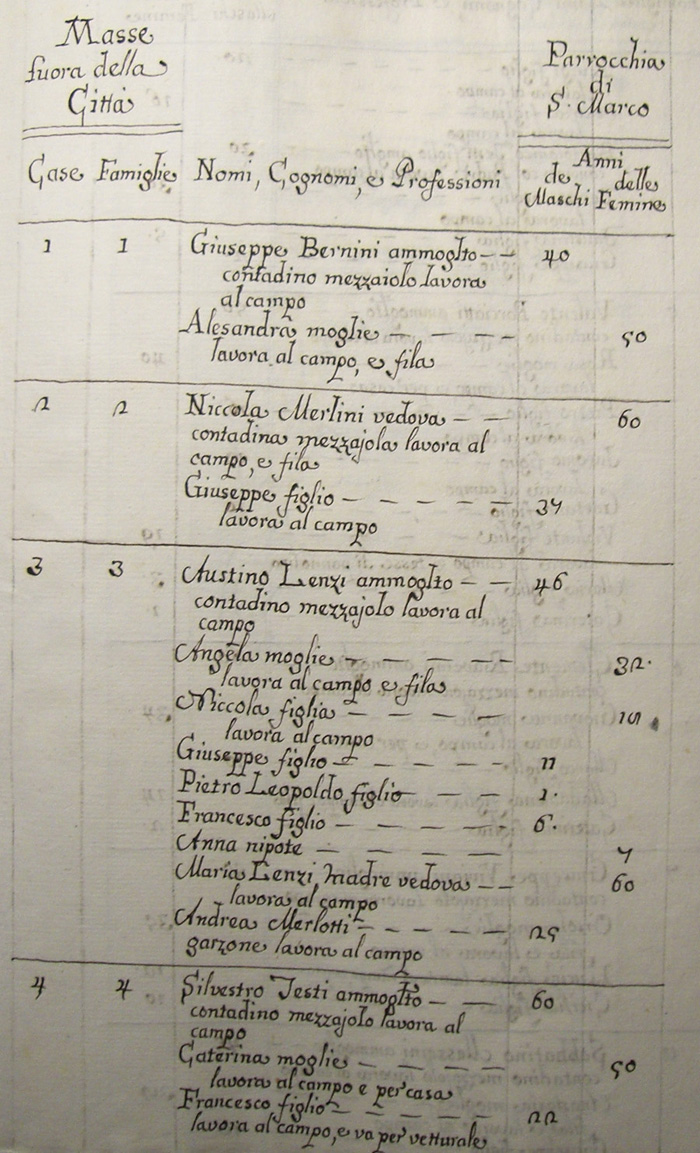 Masse
fuora della
Città
Parrocchia
di
S. Marco
Case Famiglie Nomi, Cognomi, e Professioni
Anni
de delle
Maschi Femine
1 1 Giuseppe Bernini ammogl:to - - 40
contadino mezzaiolo lavora
al campo
Alesandra moglie - - - - 50
lavora al campo, e fila
2 2 Niccola Merlini vedova - - 60
contadina mezzajola lavora al
campo, e fila
Giuseppe figlio - - - - - 34
lavora al campo
3 3 Austino Lenzi ammogl:to - - 46
contadino mezzajolo lavora al
campo
Angela moglie - - - - - 32.
lavora al campo e fila
Niccola figlia - - - - -
lavora al campo
Giuseppe figlio - - - - - 11
Pietro Leopoldo figlio - - - 1.
Francesco figlio - - - - - 6.
Anna nipote - - - - -
Maria Lenzi madre vedova - - 60
lavora al campo
Andrea Merlotti - - - - - 25
garzone lavora al campo
4 4 Silvestro Testi ammogl:to - - 60
contadino mezzajolo lavora al
campo
Caterina moglie - - - - - 50
lavora al campo e per casa
Francesco figlio - - - - - 22
lavora al campo, e va per vetturale